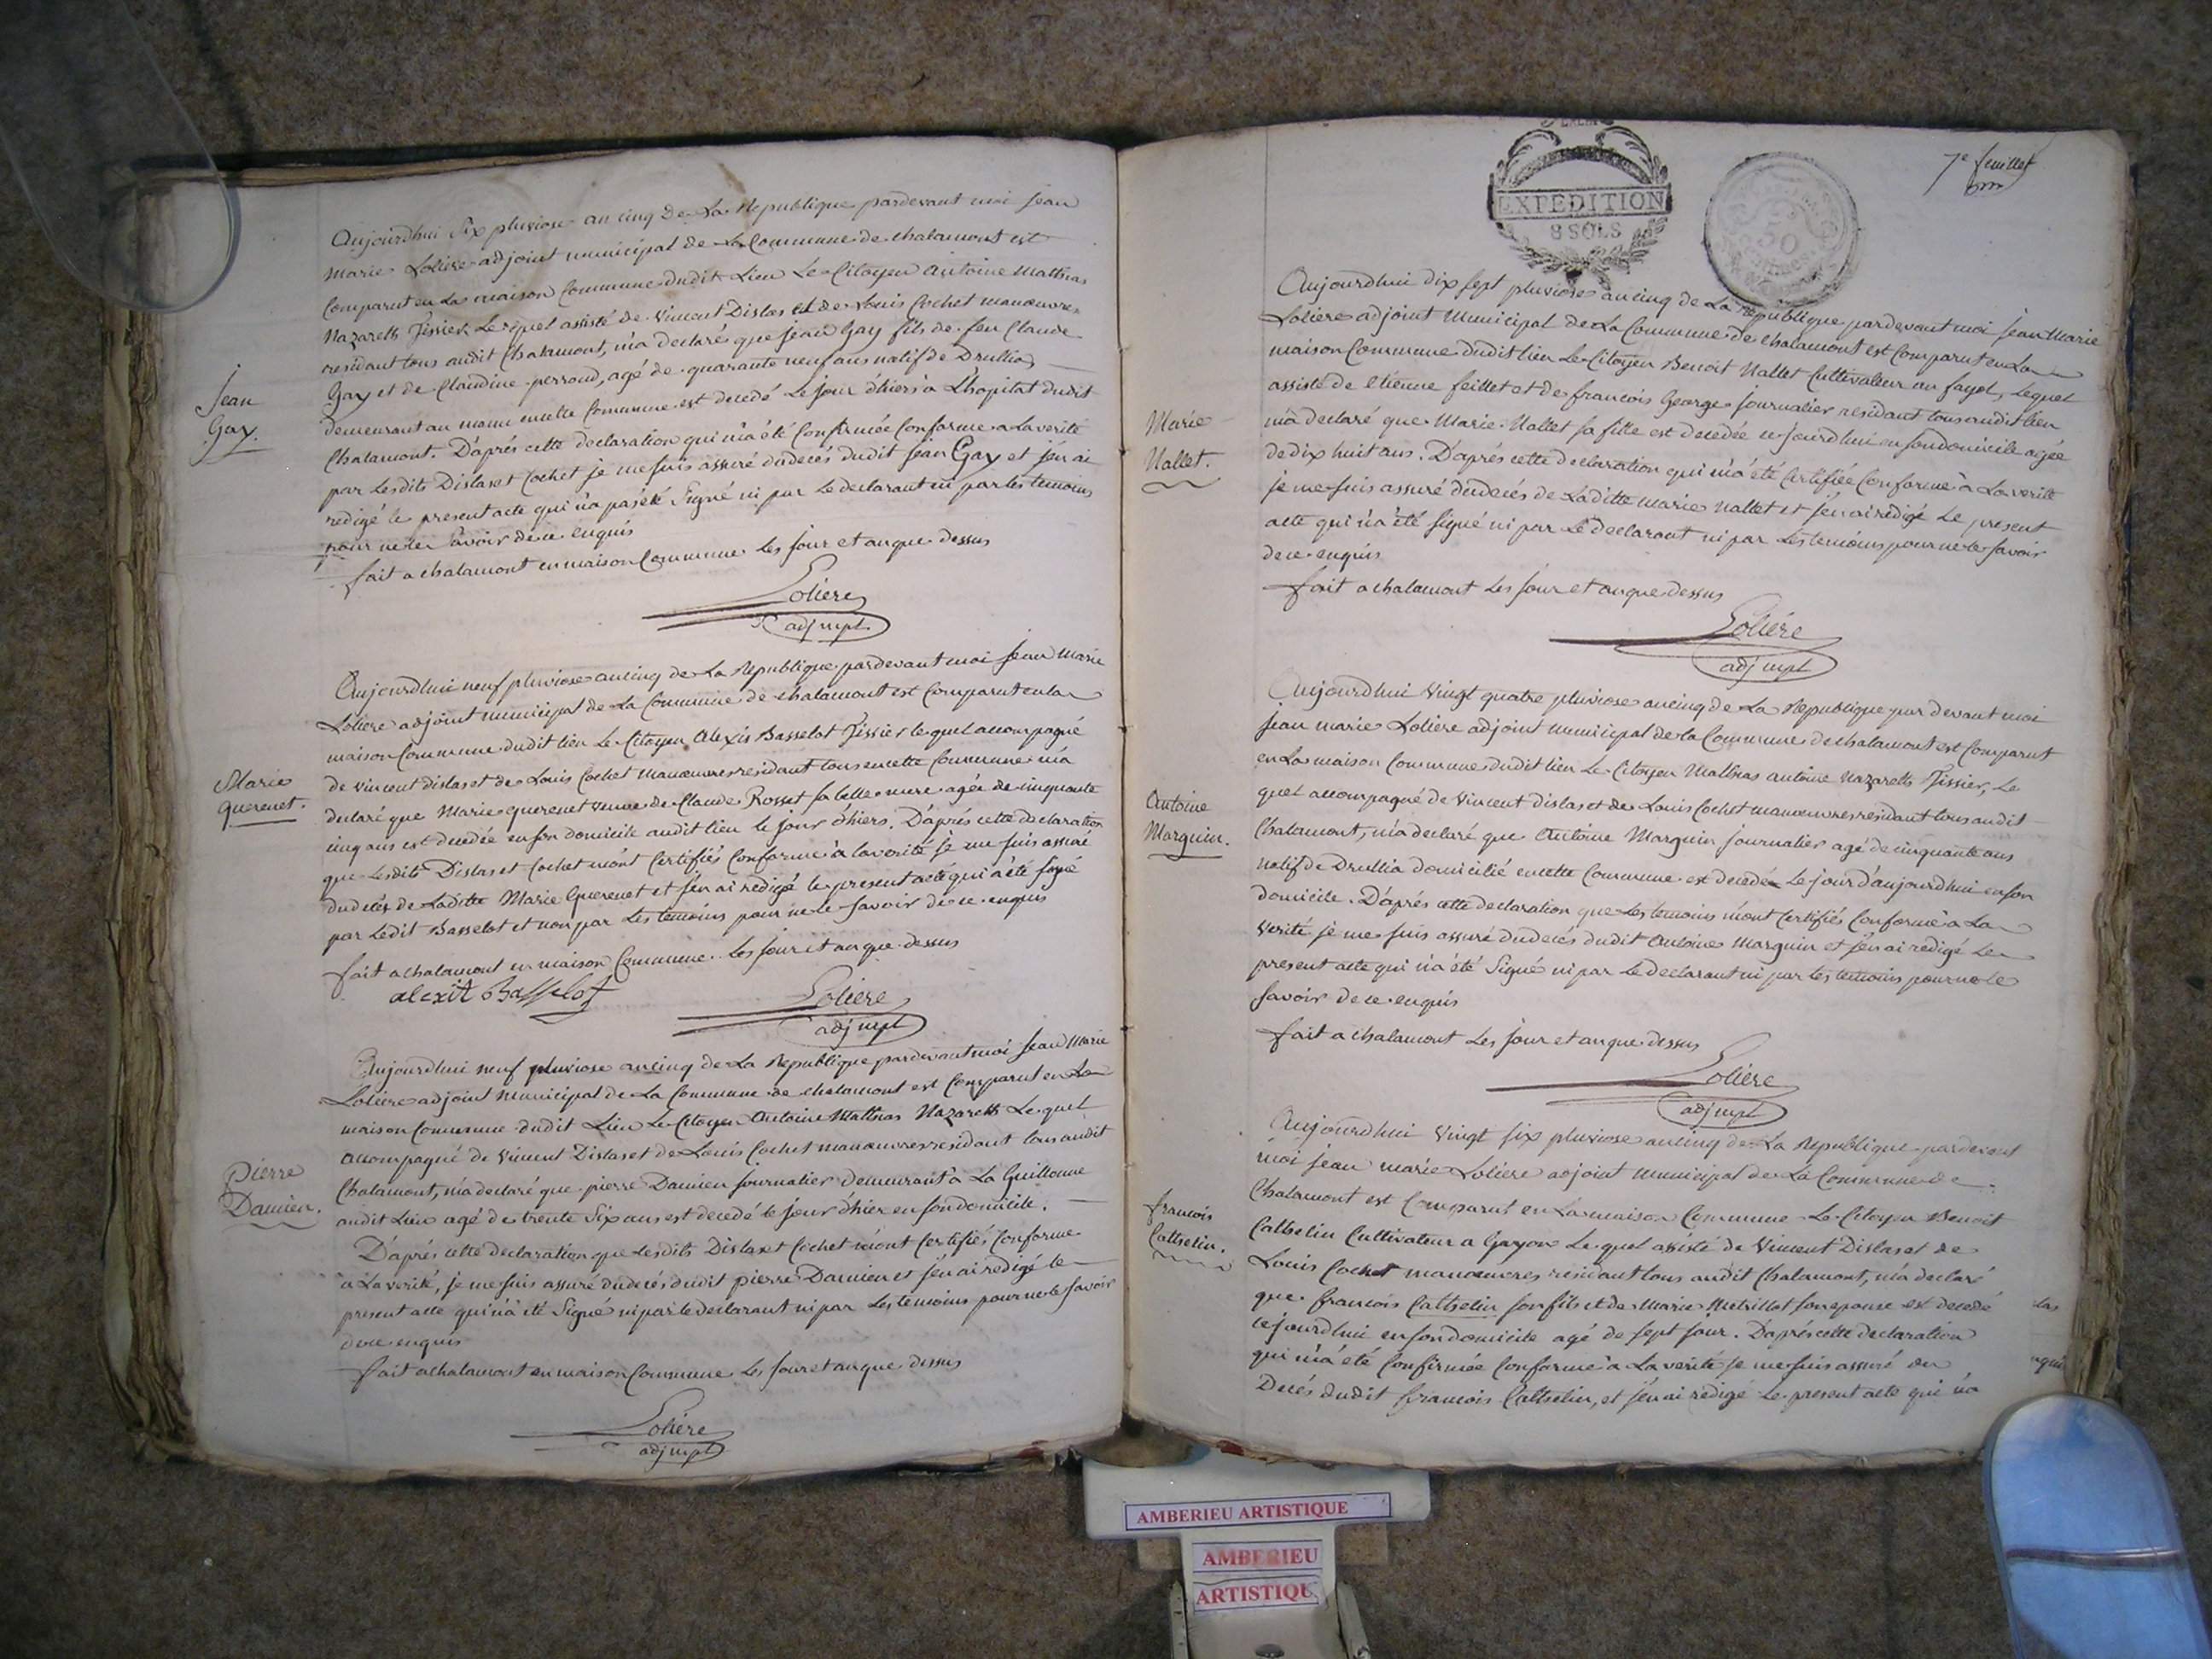 Aujourdhui Six pluviose an cinq de La Republique pardevant moi Jean
Marie Loliere adjoint municipal de La Commune de chalamont est
Comparut en La maison Commune dudit Lieu Le Citoyen Antoine Mathias
Nazareth Tissier Lequel assisté de Vincent Dislas et de Louis Cochet manœuvres
residant tous audit Chalamont, m'a declaré que Jean Gay fils de feu Claude
Gay et de Claudine perroud, agé de quarante neuf ans natif de Drullia
demeurant au meme en cette Commune est decedé Le jour d'hier à L'hopital dudit
Chalamont. D'aprés cette declaration qui m'a été Confirmée Conforme a La verité
par Lesdits Dislas et Cochet je me suis assuré du decés dudit Jean Gay et j'en ai
redigé le present acte qui n'a pas été Signé ni par Le declarant ni par les temoins
pour ne le Savoir de ce enquis
fait a chalamont en maison Commune Les jour et an que dessus
Loliere
adj mpl
Jean
Gay.
Aujourdhui neuf pluviose an cinq de La Republique pardevant moi Jean Marie
Loliere adjoint municipal de La Commune de chalamont est Comparut en La
maison Commune dudit lieu Le Citoyen Alexis Basselot Tissier lequel accompagné
de Vincent dislas et de Louis Cochet manœuvres residant tous en cette Commune m'a
declaré que Marie querenet veuve de Claude Rosset sa belle mere agée de cinquante
cinq ans est decedée en son domicile audit lieu le jour d'hiers. D'aprés cette declaration
que Lesdits Dislas et Cochet m'ont Certifiés Conforme à la verité je me suis assuré
du decés de Laditte Marie Querenet et j'en ai redigé le present acte qui a été signé
par Ledit Basselot et non par Les temoins pour ne le savoir de ce enquis
fait a chalamont en maison Commune Les jour et an que dessus
alexit Basselot
Loliere
adj mpl
Marie
querenet.
Aujourdhui neuf pluviose an cinq de La Republique pardevant moi Jean Marie
Loliere adjoint Municipal de La Commune de chalamont est Comparut en La
maison Commune dudit Lieu Le Citoyen Antoine Mathias Nazareth Lequel
accompagné de Vincent Dislas et de Louis Cochet manœuvres residant tous audit
Chalamont, m'a declaré que pierre Damien journalier demeurant à La Guillonne
audit Lieu agé de trente Six ans est decedé le jour d'hier en son domicile.
D'aprés cette declaration que Lesdits Dislas et Cochet m'ont Certifiés Conforme
à La verité, je me suis assuré du decés dudit pierre Damien et j'en ai redigé le
present acte qui n'a été Signé ni par le declarant ni par Les temoins pour ne le savoir
de ce enquis
fait a chalamont en maison Commune Les jour et an que dessus
Loliere
adj mpl
Pierre
Damien.
7e feuillet
EXPEDITION
8 SOLS
50
Aujourdhui dix sept pluviose an cinq de La Republique pardevant moi Jean Marie
Loliere adjoint Municipal de La Commune de chalamont est Comparut en La
maison Commune dudit lieu Le Citoyen Benoit Nallet Cultivateur au fayol, Lequel
assisté de Etienne feillet et de francois George journalier residant tous audit lieu
m'a declaré que Marie Nallet sa fille est decedée ce jourdhui en son domicile agée
de dix huit ans. D'aprés cette declaration qui m'a été Certifiée Conforme à La verité
je me suis assuré du decés de Laditte Marie Nallet et j'en ai redigé Le present
acte qui n'a été signé ni par Le declarant ni par Les temoins pour ne le savoir
de ce enquis
fait a chalamont Les jour et an que dessus
Loliére
adj mpl
Marie
Nallet.
Aujourdhui Vingt quatre pluviose an cinq de La Republique par devant moi
Jean marie Loliere adjoint Municipal de la Commune de chalamont est Comparut
en La maison Commune dudit lieu Le Citoyen Mathias antoine Nazareth Tissier, Le
quel accompagné de Vincent dislas et de Louis Cochet manœuvres residant tous audit
Chalamont, m'a declaré que Antoine Marguin journalier agé de cinquante ans
natif de Drullia domicilié en cette Commune est decedé Le jour d'aujourdhui en son
domicile. D'aprés cette declaration que Les temoins m'ont Certifiés Conforme à La
verité je me suis assuré du decés dudit Antoine Marguin et j'en ai redigé Le
present acte qui n'a été Signé ni par Le declarant ni par Les temoins pour ne le
savoir de ce enquis
fait a chalamont Les jour et an que dessus
Loliére
adj mpl
Antoine
Marguin.
Aujourdhui Vingt six pluviose an cinq de La Republique pardevant
moi Jean marie Loliere adjoint Municipal de La Commune de
Chalamont est Comparut en La maison Commune Le Citoyen Benoit
Cathelin Cultivateur a Gayon Lequel assisté de Vincent Dislas et de
Louis Cochet manœuvres residant tous audit Chalamont, m'a declaré
que francois Cathelin son fils et de Marie Metrillot son epouse est decedé
ce jourdhui en son domicile agé de sept jour. D'aprés cette declaration
qui m'a été Confirmée Conforme à La verité je me suis assuré du
Decés dudit francois Cathelin, et j'en ai redigé Le present acte qui n'a
francois
Cathelin.
AMBERIEU ARTISTIQUE
AMBERIEU
ARTISTIQU